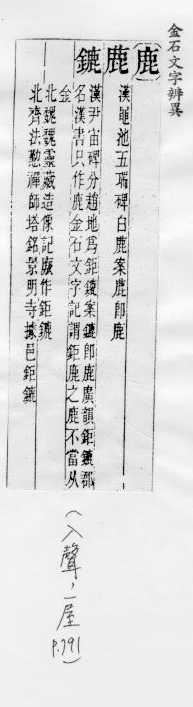 金石文字辨異
鹿
鹿
漢黽池五瑞碑白鹿案鹿即鹿
鏕
漢尹宙碑分趙地爲鉅鏕案鏕即鹿廣韻鉅鏕郡
名漢書只作鹿金石文字記謂鉅鹿之鹿不當从
金
北魏魏靈藏造像記作鉅鏕
北齊法懃禪師塔銘景明寺邑鉅鏕
(入聲,一屋
P.791)